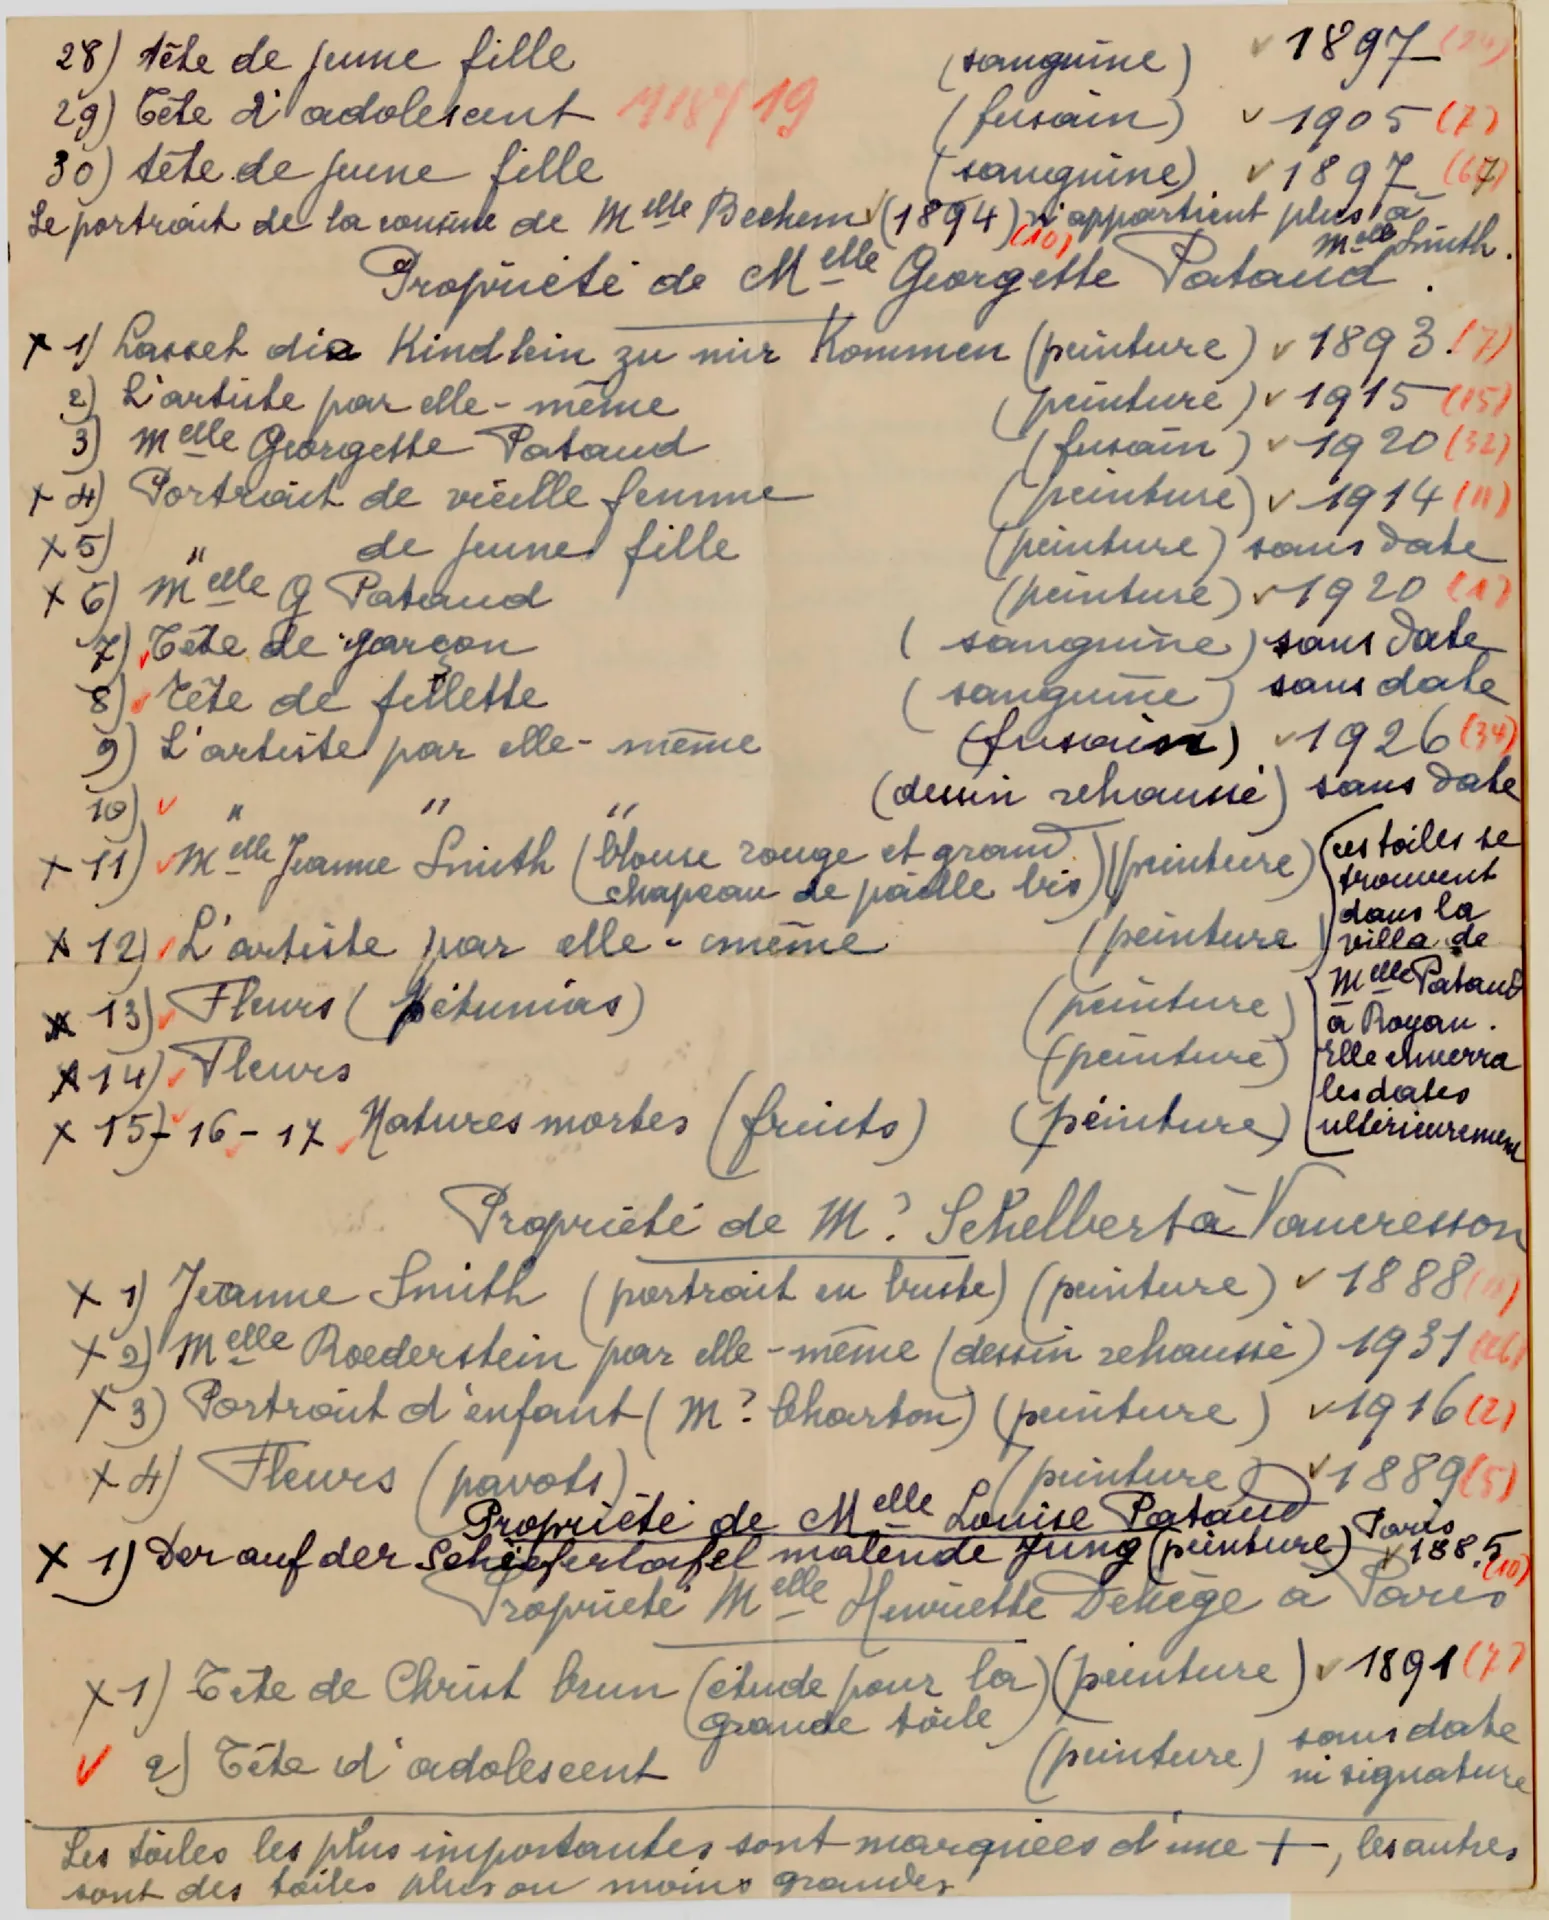 28) tête de jeune fille (sanguine) v 1897 (24)
29) Tête d'adolescent 1918/19 (fusain) v 1905 (7)
30) tête de jeune fille (sanguine) v 1897
Le portrait de la cousine de Melle Bechem v (1894) (10) n'appartient plus à
Melle Smith.
Propriété de Melle Georgette Pataud.
x 1) Lasset die Kindlein zu mir Kommen (peinture) v 1893. (7)
2) L'artiste par elle-même (peinture) v 1915 (15)
3) Melle Georgette Pataud (fusain) v 1920 (32)
x 4) Portrait de vieille femme (peinture) v 1914 (11)
x 5) " de jeune fille (peinture) sans date
x 6) Melle G Pataud (peinture) v 1920 (1)
7) v Tête de garçon (sanguine) sans date
8) v Tête de fillette (sanguine) sans date
9) L'artiste par elle-même (fusain) v 1926 (34)
10) v " " " (dessin rehaussé) sans date
x 11) v Melle Jeanne Smith (blouse rouge et grand
chapeau de paille bis) (peinture)
x 12) v L'artiste par elle-même (peinture)
x 13) v Fleurs (pétunias) (peinture)
x 14) v Fleurs (peinture)
x 15) - 16 - 17 v Natures mortes (fruits) (peinture)
ces toiles se
trouvent
dans la
villa de
Melle Pataud
à Royan.
Elle enverra
les dates
ultérieurement
Propriété de M? Schelbert à Vaucresson
x 1) Jeanne Smith (portrait en buste) (peinture) v 1888
x 2) Melle Roederstein par elle-même (dessin rehaussé) 1931
x 3) Portrait d'enfant (M? Charton) (peinture) v 1916 (2)
x 4) Fleurs (pavots) (peinture) v 1889 (5)
Propriété de Melle Louise Pataud Paris
x 1) Der auf der Schiefertafel malende Jung (peinture) v 1885 (10)
Propriété Melle Henriette Dehège à Paris
x 1) Tête de Christ brun (étude pour la
grande toile) (peinture) v 1891 (7)
v 2) Tête d'adolescent (peinture) sans date
ni signature
Les toiles les plus importantes sont marquées d'une +, les autres
sont des toiles plus ou moins grandes